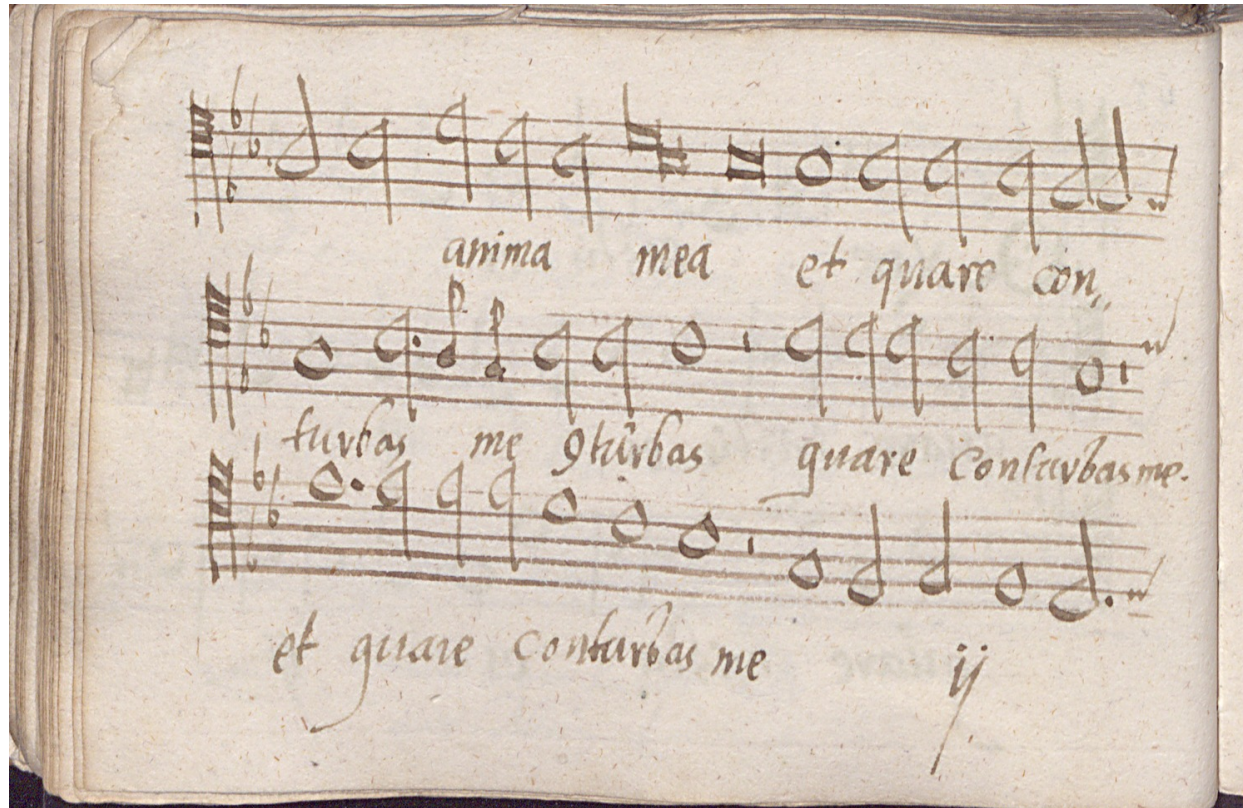 anima mea et quare con„
turbas me 9tũrbas quare conturbas me.
et quare conturbas me ij